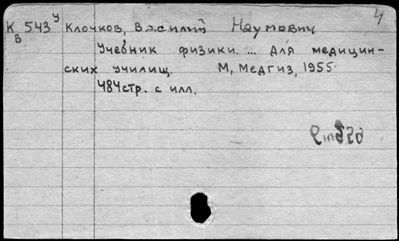 К 543 у Клочков, Василий Наумович 4
в
Учебник физики. ... Для медицин-
ских училищ. М, Медгиз, 1955
484стр. с илл.